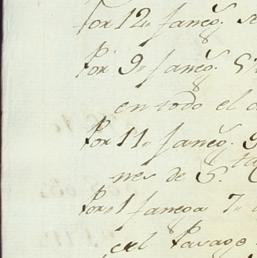 Por 12 „ faneg.s
Por 9 „ faneg.s
en todo el
Por 11 „ faneg.s
nes de S.
Por 1 fanega 7 „
en el Pasage